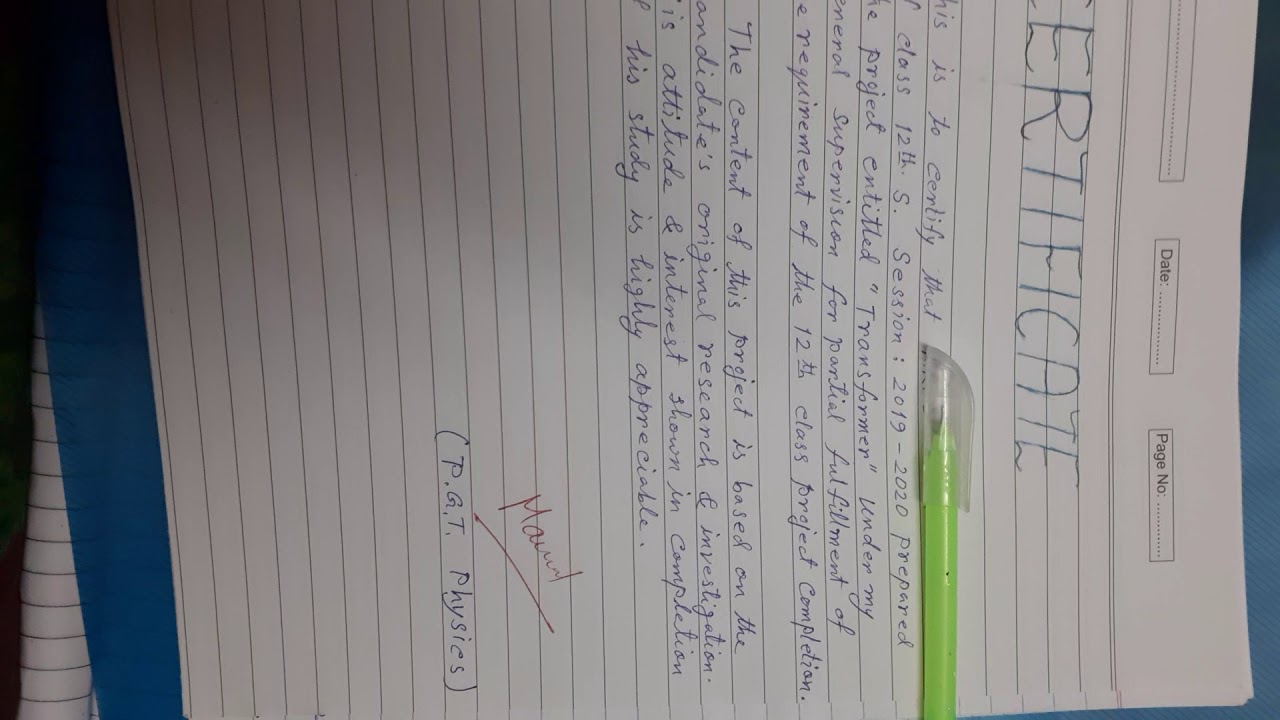 Date: ............
Page No: ............
ERTIFICATE
his is to certify that
f class 12th. S. Session: 2019-2020 prepared
he project entitled "Transformer" under my
eneral supervision for partial fulfillment of
e requirement of the 12th class project completion.
The content of this project is based on the
andidate's original research & investigation.
is attitude & interest shown in completion
f his study is highly appreciable.
(P.G.T. Physics)